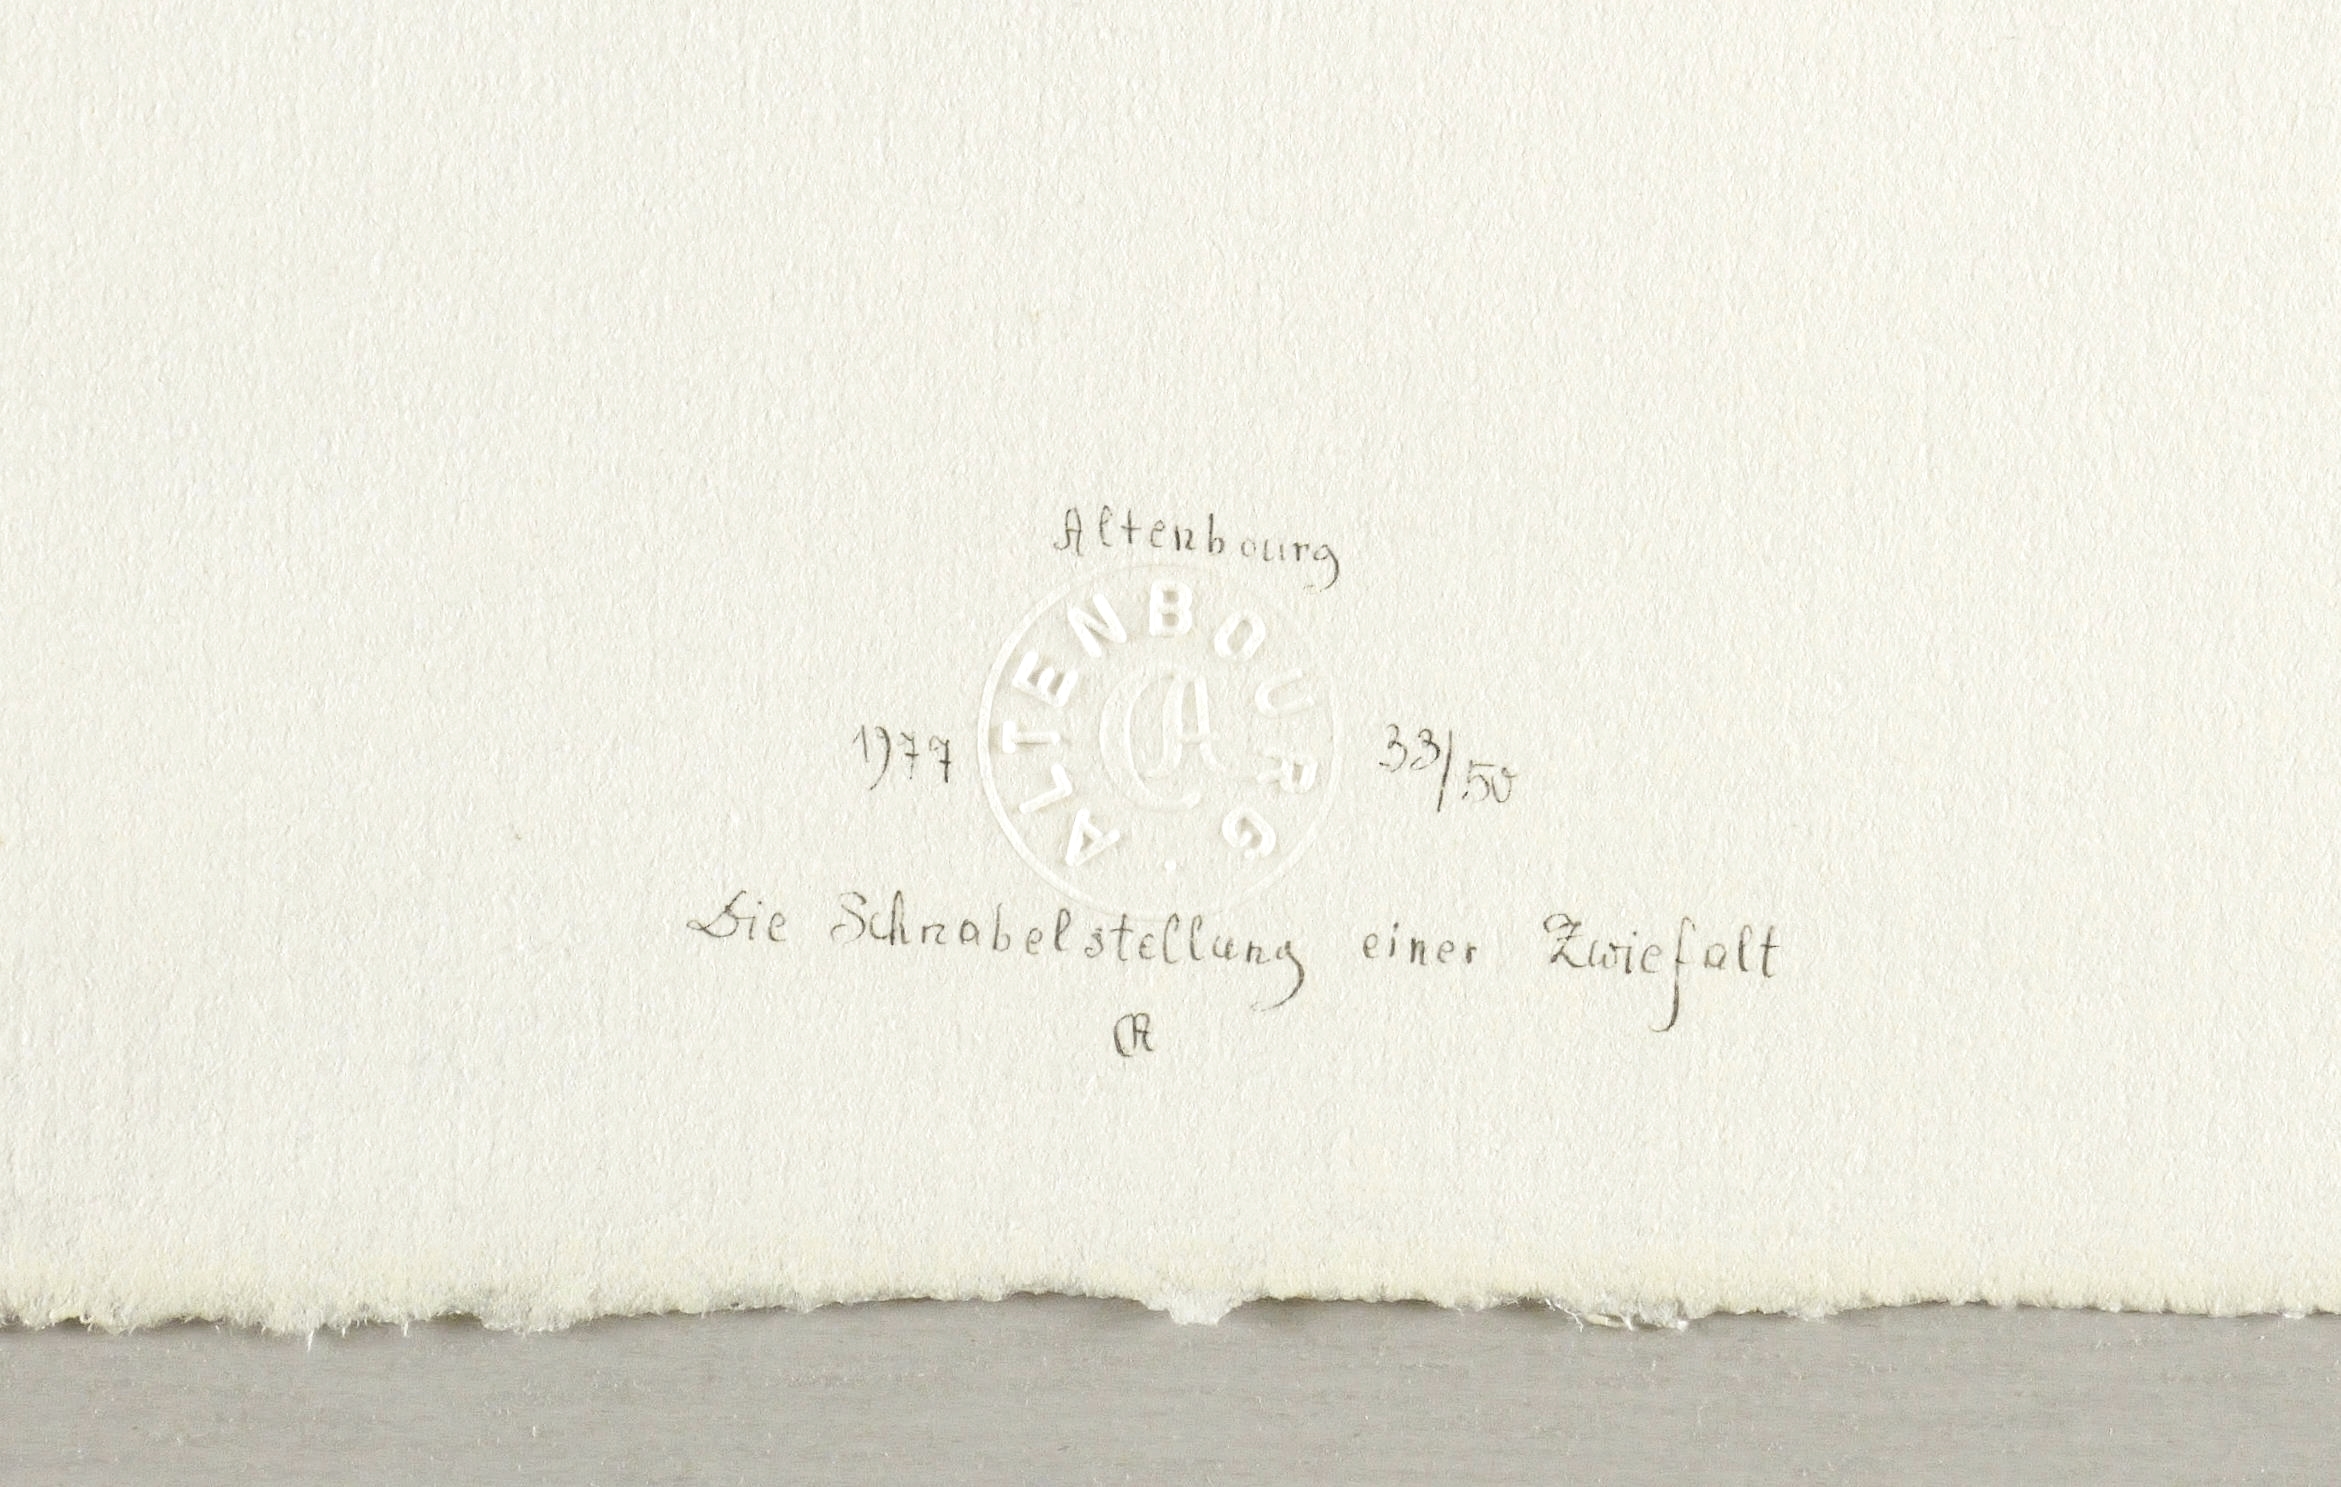 Altenbourg
ALTENBOURG.
GA
1977 33/50
Die Schnabelstellung einer Zwiefalt
GA